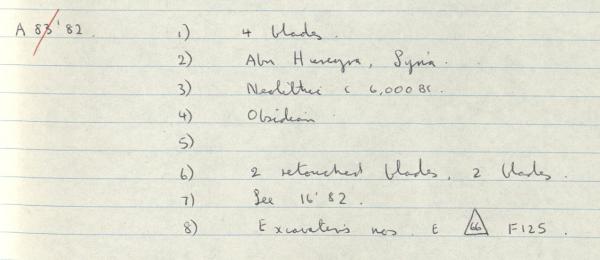 A 83'82. 1) 4 blades.
2) Abu Hureyra, Syria.
3) Neolithic c 6,000 BC.
4) Obsidian
5)
6) 2 retouched blades, 2 blades.
7) See 16'82.
8) Excavators nos. E 66 F125.